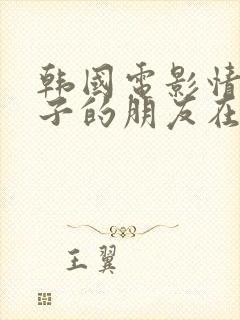 韩國電影情
子的朋友在
王翼